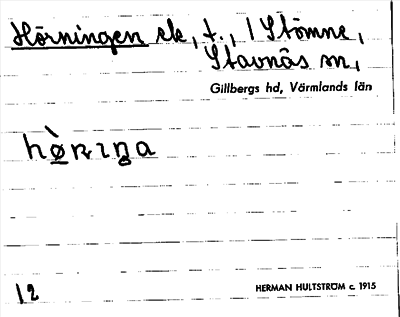 Hörningen sk, t., 1 Stömne,
Stavnäs sn,
Gillbergs hd, Värmlands län
hø̀rɩŋa
12
HERMAN HULTSTRÖM c. 1915